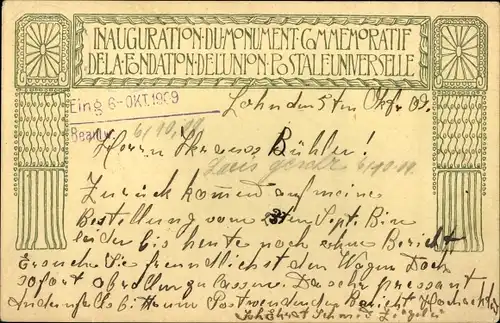 INAUGURATION·DU·MONUMENT·COMMEMORATIF
DE·LA·FONDATION·DE·L'UNION·POSTALE·UNIVERSELLE
Eing 6-OKT.1909
Beantw. 6/10.09
Lohn den 5ten Oktbr 09.
Herrn Bühler!
Zurück komend auf meine
Bestellung vom Sept. Bin
leider bis heute noch ohne Bericht
Ersuche Sie freundlichst den Wagen doch
sofort abrollen zu lassen. Da sehr pressant
bitte um Postwendenden Bericht Hochacht.
Joh Ehrat Schmid